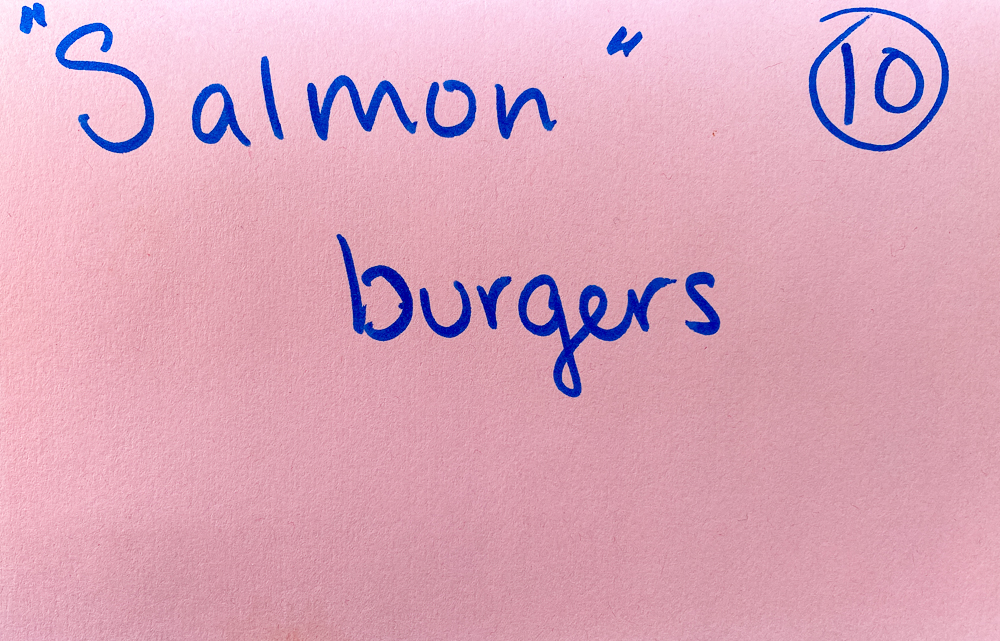 "Salmon" 10
burgers